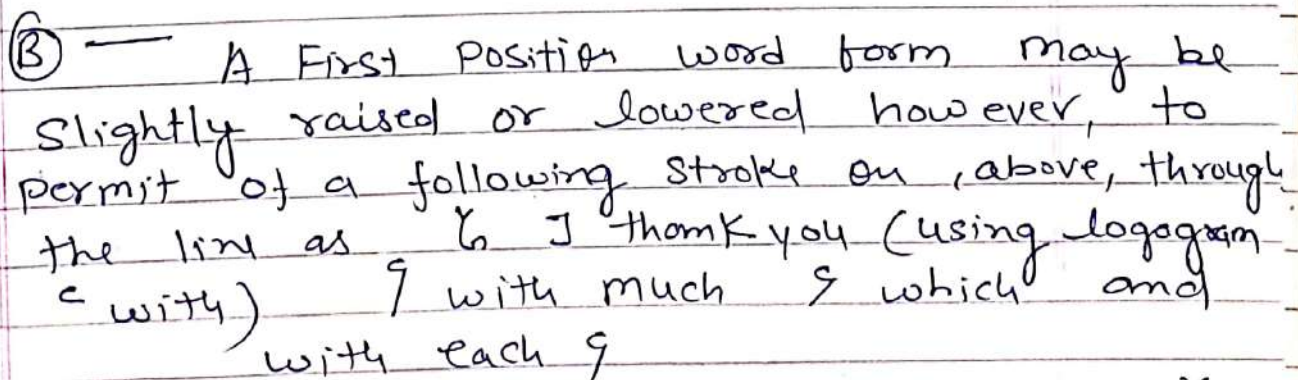 (B) — A First Position word form may be
Slightly raised or lowered however, to
permit of a following stroke on, above, through
the line as I thank you (using logogram
with) with much which and
with each